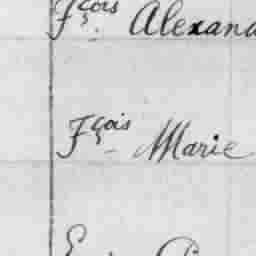 Fçois Alexand
Fçois Marie